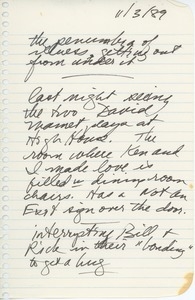 11/3/89
the penumbra of
illness, getting out
from under it
last night seeing
the two David
Mamet plays at
High House. The
room where Ken and
I made love is
filled w dining room
chairs. Has a Not an
Exit sign over the door.
interrupting Bill &
Rick in their "bonding"
to get a hug